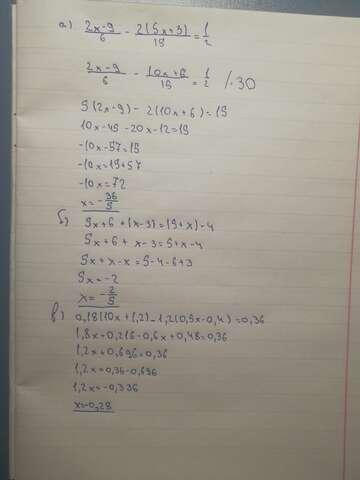 а) (2x-9)/6 - 2(5x+3)/15 = 1/2
(2x-9)/6 - (10x+6)/15 = 1/2 /·30
5(2x-9) - 2(10x+6) = 15
10x-45-20x-12=15
-10x-57=15
-10x=15+57
-10x=72
x=-36/5
б) 5x+6+(x-3)=(5+x)-4
5x+6+x-3=5+x-4
5x+x-x=5-4-6+3
5x=-2
x=-2/5
в) 0,18(10x+1,2)-1,2(0,5x-0,4)=0,36
1,8x+0,216-0,6x+0,48=0,36
1,2x+0,696=0,36
1,2x=0,36-0,696
1,2x=-0,336
x=-0,28